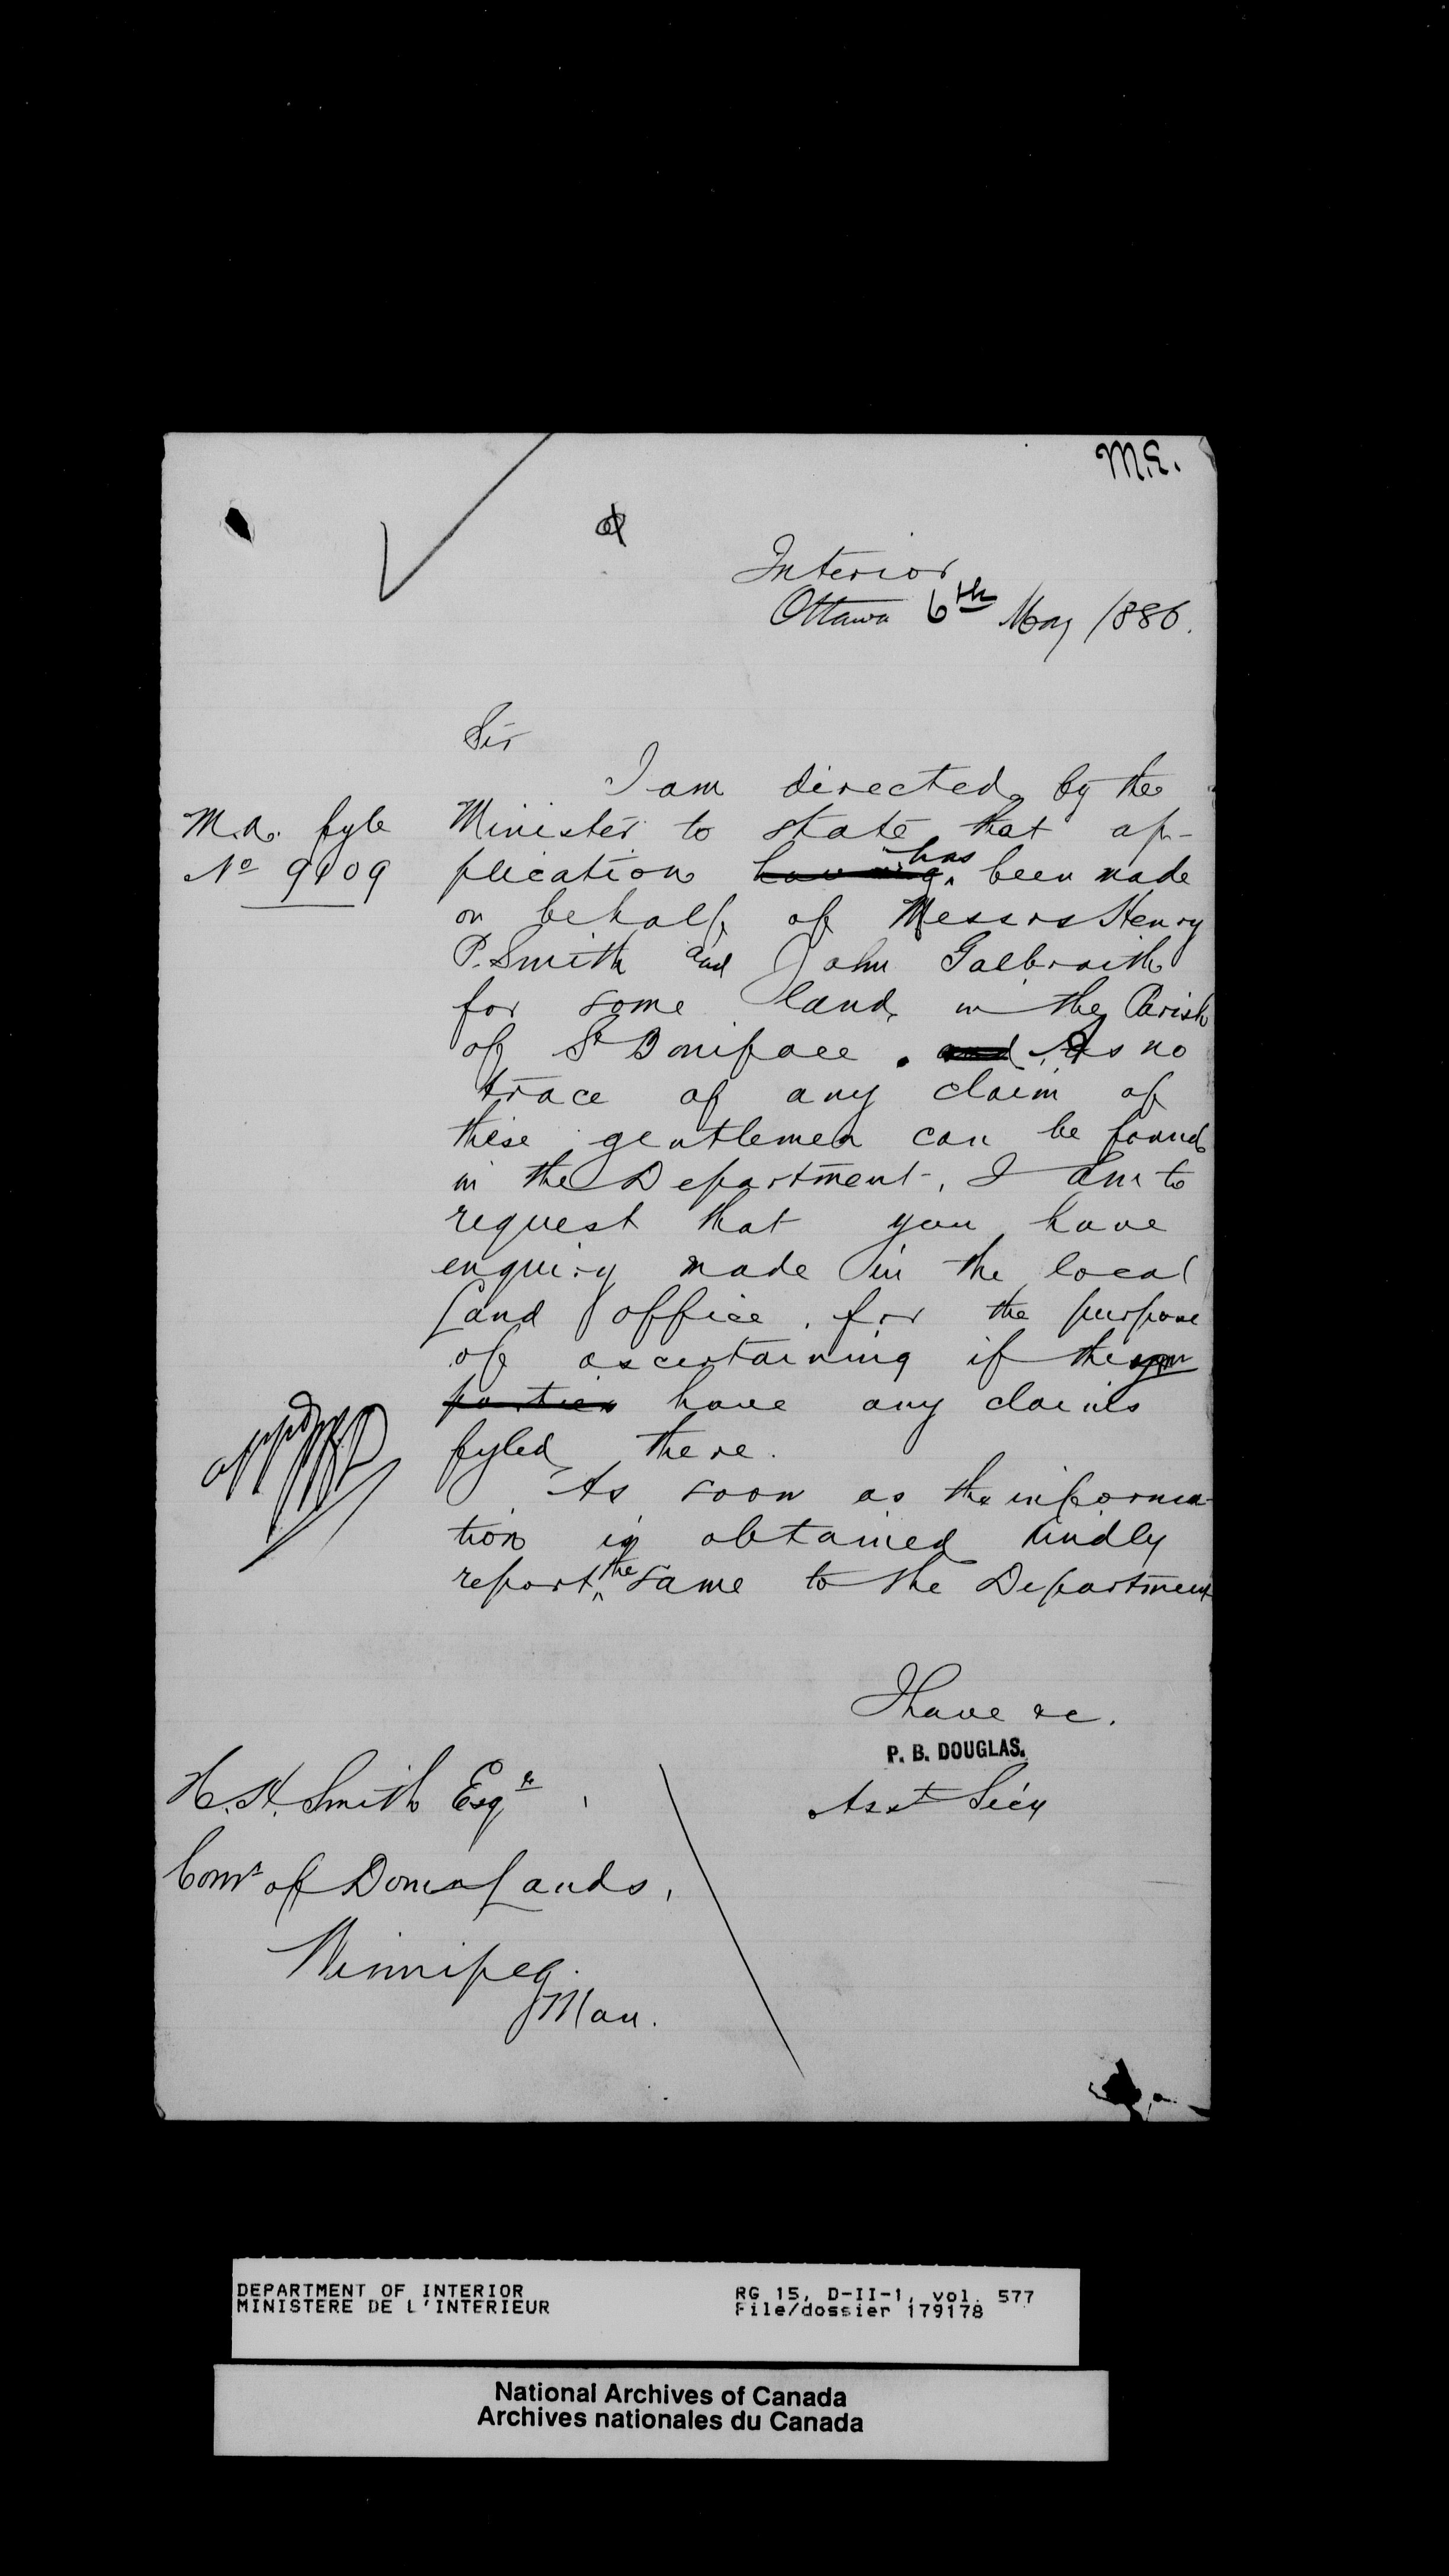 M.R.
Interior
Ottawa 6th May 1886.
Sir
I am directed by the
M.R. fyle Minister to state that ap-
No 9109 plication having has been made
on behalf of Messrs Henry
P. Smith and John Galbraith
for some land in the Parish
of St Boniface. and As no
trace of any claim of
these gentlemen can be found
in the Department, I am to
request that you have
enquiry made in the local
Land office, for the purpose
of ascertaining if they
parties have any claims
fyled there.
As soon as the informa-
tion is obtained kindly
report the same to the Department
I have &c.
P. B. DOUGLAS.
Asst Secy
H. H. Smith Esqre,
Comr of Domn Lands,
Winnipeg.
Man.
DEPARTMENT OF INTERIOR RG 15, D-II-1, vol. 577
MINISTERE DE L'INTERIEUR File/dossier 179178
National Archives of Canada
Archives nationales du Canada